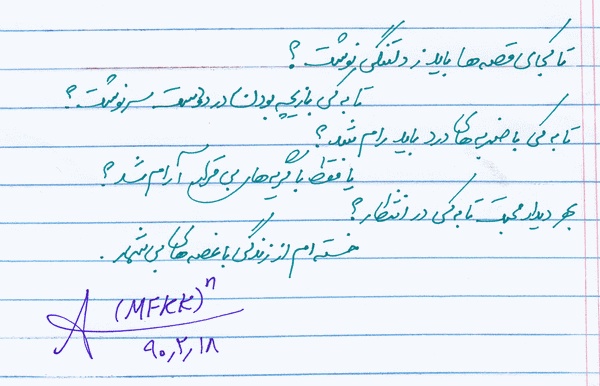 تا کجای قصه ها باید ز دلتنگی نوشت؟
تا به کی بازیچه بودن در دو دست سرنوشت؟
تا به کی با ضربه های درد باید رام شد؟
یا فقط با گریه های بی قرار آرام شد؟
بهر دیدار محبت تا به کی در انتظار؟
خسته ام از زندگی با غصه های بی شمار.
(MFKK)ⁿ
۹۰,۲,۱۸